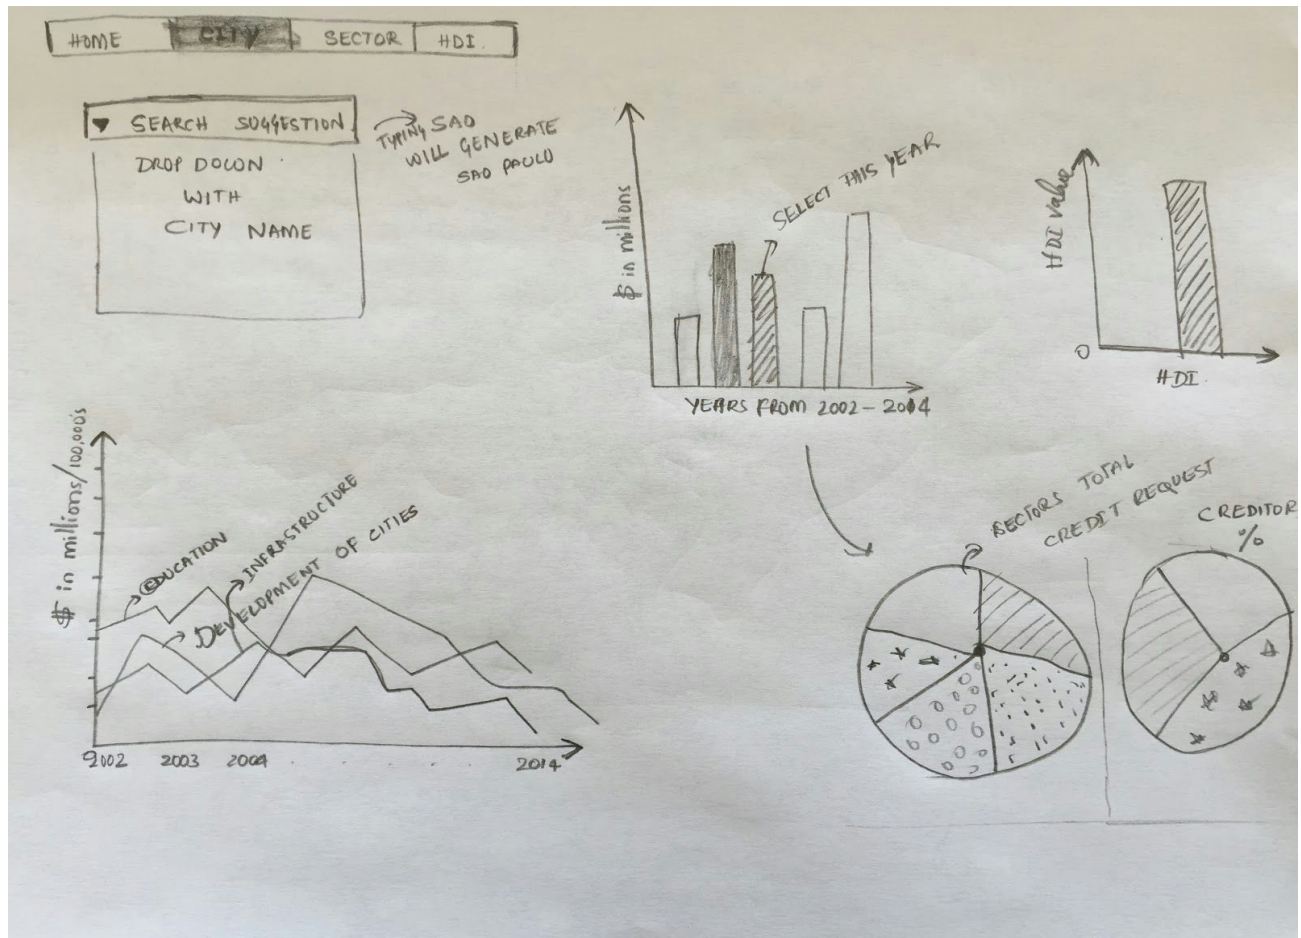 HOME CITY SECTOR HDI.
SEARCH SUGGESTION
DROP DOWN
WITH
CITY NAME
TYPING SAO
WILL GENERATE
SAO PAULO
$ in millions
SELECT THIS YEAR
YEARS FROM 2002 - 2014
HDI value
0
HDI.
$ in millions/100,000's
EDUCATION
INFRASTRUCTURE
DEVELOPMENT OF CITIES
2002 2003 2004 . . . . . 2014
SECTORS TOTAL
CREDIT REQUEST
CREDITOR
%